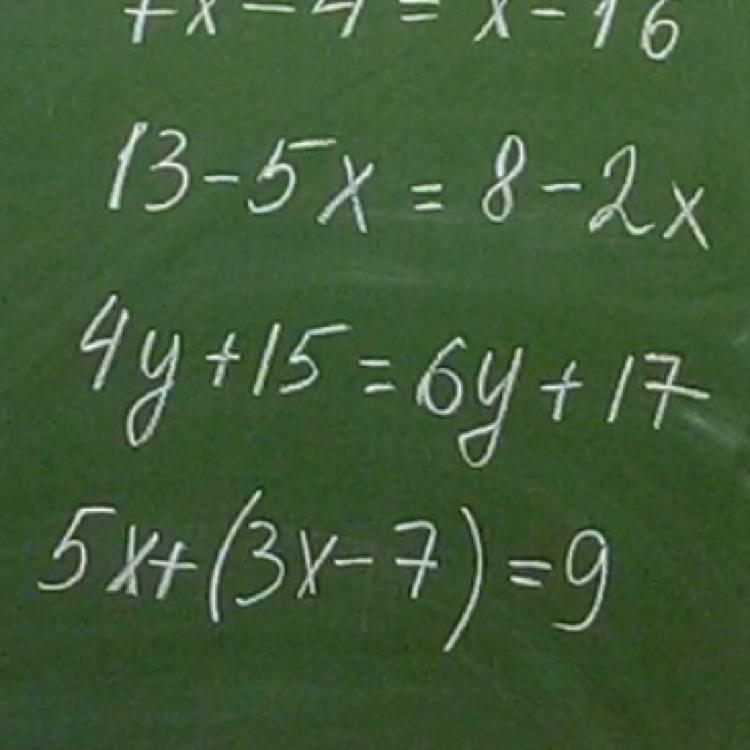 7x-4=x-16
13-5x=8-2x
4y+15=6y+17
5x+(3x-7)=9